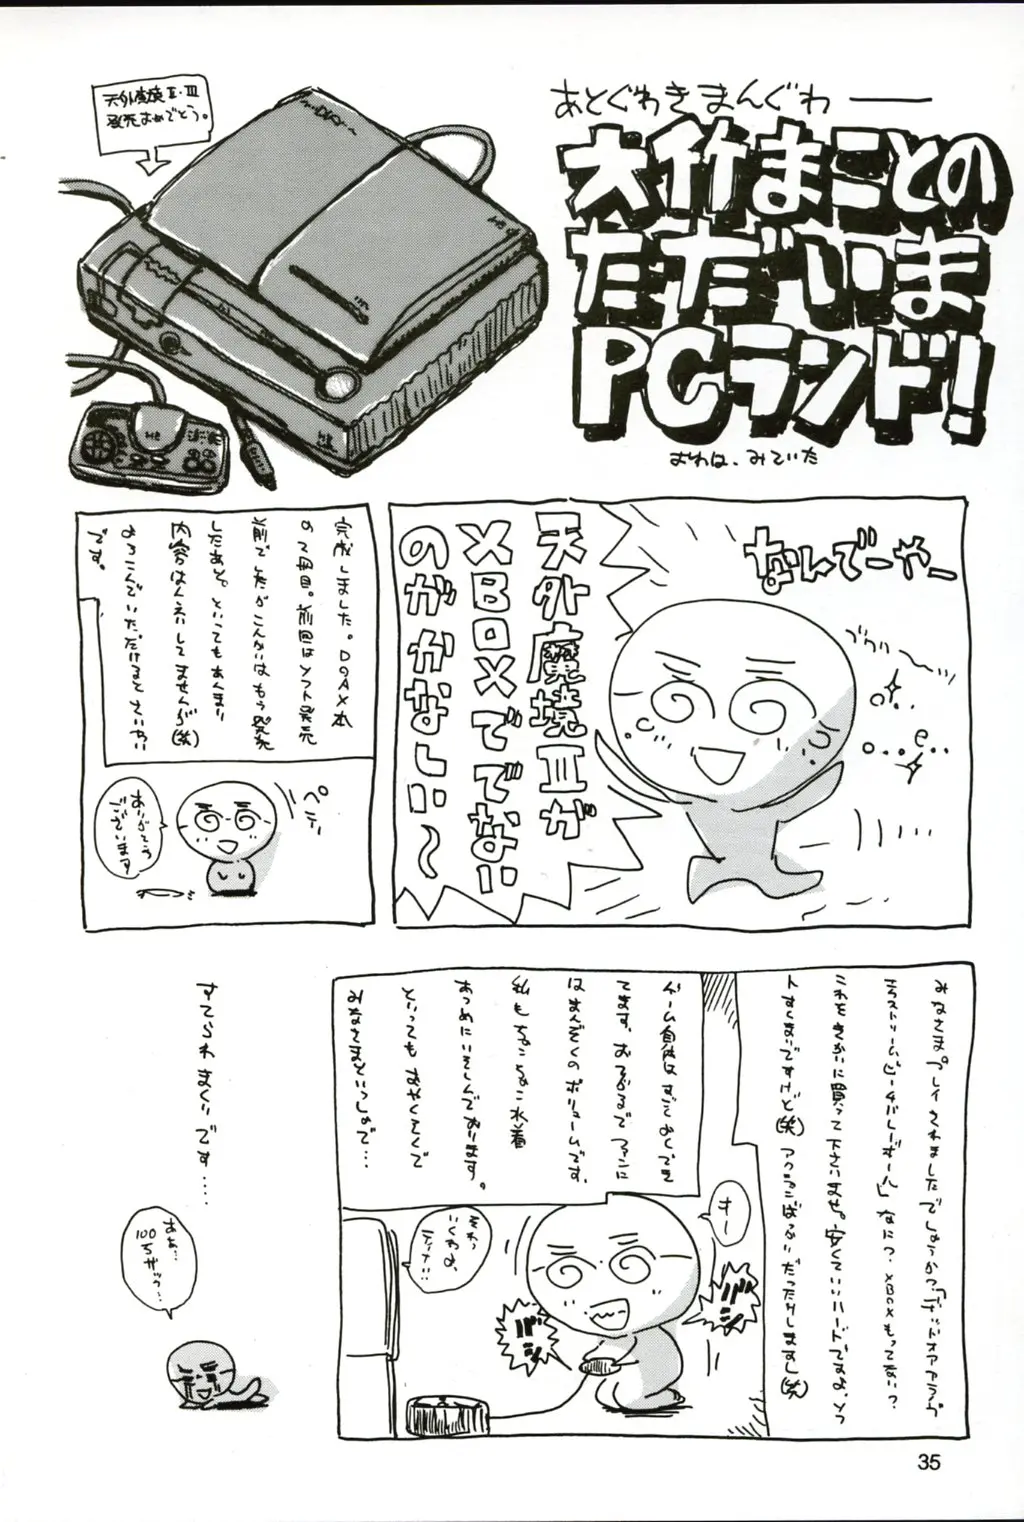 あとぐわきまんぐわ――
大竹まことの
ただいま
PCランド!
おわは、みていた
天外魔境Ⅱ・Ⅲ
発売おめでとう。
なんでーやー
天外魔境Ⅲが
XBOXででない
のがかなしい〜
完成しました。DOAX本
の2冊目。前回はソフト発売
前でしたがこんかいはもう発売
したあと。といってもあんまり
内容はんえいしてませんが(笑)
よろこんでいただけるとさいわい
です。
ペデ
ありがとう
ございます
みなさま プレイされましたでしょうか?「デッドオアアライブ
エクストリームビーチバレーボール」なに?XBOXもってない?
これをきかいに買って下さいませ。安くていいハードですよ。ソフ
トすくないですけど(笑)アクションばっかだったりしますし(笑)
ゲーム自体はすごくよくでき
てます。おふろるでファンに
はまんぞくのボリュームです。
私もちょこちょこ水着
あつめにいそしんでおります。
といってもおやくそくで
みなさまといっしょで…
すー
それっ
いくわよ
ティナ…
バシ
バシ
すてられまくりです….
ああ…
100万ザック…
35